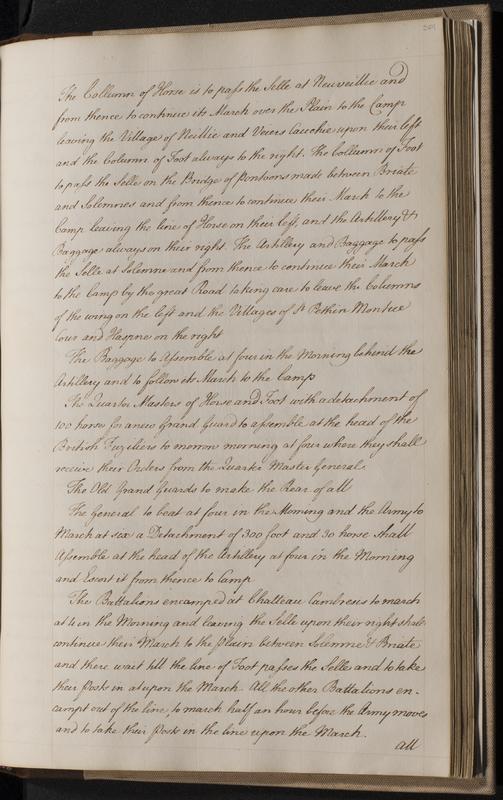 The Collumn of Horse is to pass the Selle at Neuveillie and
from thence to continue its March over the Plain to the Camp
leaving the Village of Neillie and Voiers Cauchie upon their left
and the Column of Foot always to the right. The Collumn of Foot
to pass the Selle on the Bridge of Pontoons made between Briate
and Solemnes and from thence to continue their March to the
Camp leaving the line of Horse on their left, and the Artillery &
Baggage always on their right. The Artillery and Baggage to pass
the Selle at Solemne and from thence to continue their March
to the Camp by the great Road taking care to leave the Columns
of the wing on the left and the Villages of St Pethin Montue
Cour and Haspne on the right
The Baggage to Assemble at four in the Morning behind the
Artillery and to follow its March to the Camp
The Quarter Masters of Horse and Foot with a detachment of
100 horse for a new Grand Guard to assemble at the head of the
British Fuziliers to morrow morning at four where they shall
receive their Orders from the Quarter Master General
The Old Grand Guards to make the Rear of all
The General to beat at four in the Morning and the Army to
March at six a Detachment of 300 foot and 30 horse shall
Assemble at the head of the Artillery at four in the Morning
and Escort it from thence to Camp
The Battalions encamped at Chatteau Cambresis to march
at 4 in the Morning and leaving the Selle upon their right shall
continue their March to the plain between Solemne & Briate
and there wait till the line of Foot passes the Selle and to take
their Posts in at upon the March. All the other Battalions en-
campt out of the line, to march half an hour before the Army moves
and to take their Posts in the line upon the March.
all